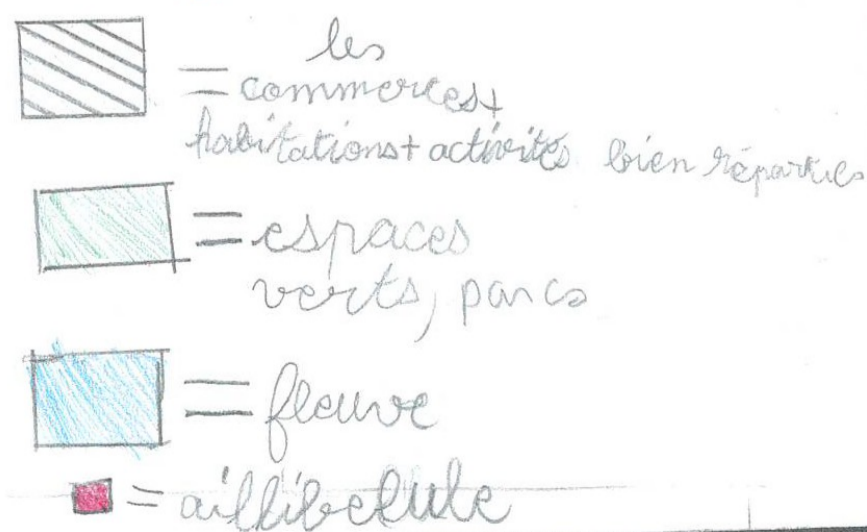 les
= commerces+
habitations+ activités bien réparties
= espaces
verts, parcs
= fleuve
= aillibelule